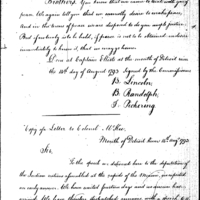 Brothers, You know that we came to treat with you of
peace. We again tell you that we earnestly desire to make peace,
And in the terms of peace we are disposed to do you ample justice.
But if no treaty is to be held, if peace is not to be obtained we desire
immediately to know it, that we may go home.
Done at Captain Elliots at the mouth of Detroit river
the 14th day of August 1793. Signed by the Commissioners
B. Lincoln,
B. Randolph,
T. Pickering
Copy of a Letter to Colonel McKee,
Mouth of Detroit River 14 Augt 1793
Sir,
To the speech we delivered here to the deputation of the
Indian nations assembled at the rapids of the Miami, we expected
an early answer. We have waited fourteen days and no answer has
arrived. We have therefore dispatched